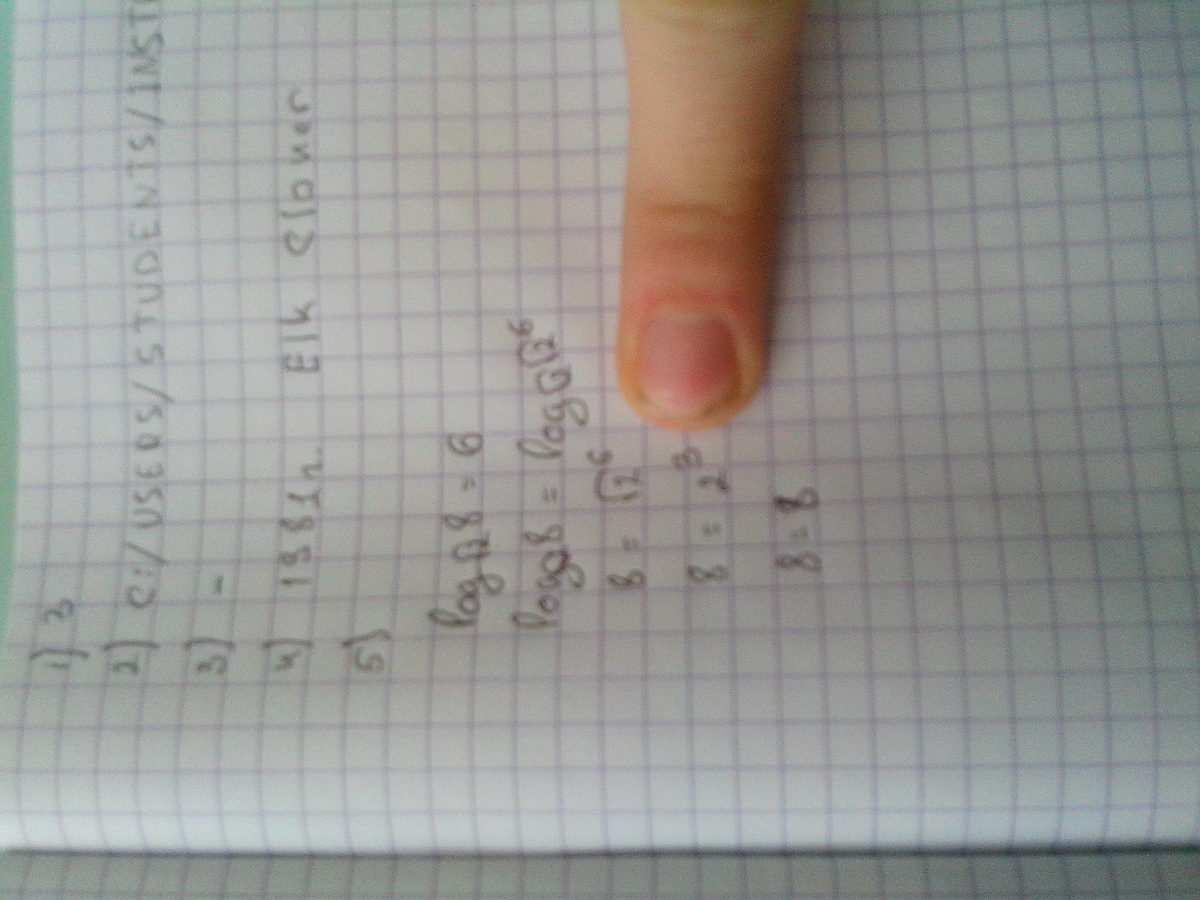 1) 3
2) C:/USEDS/STUDENTS/INST
3) -
4) 1981г. Elk Cloner
5)
log√2 8 = 6
log√2 8 = log√2 √2^6
8 = √2^6
8 = 2^3
8 = 8